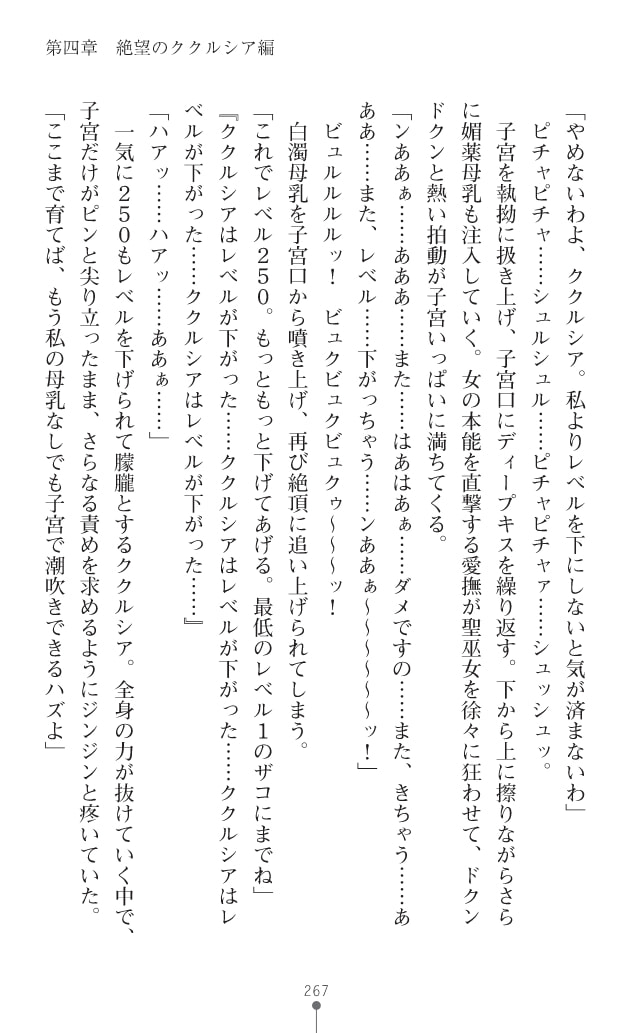 第四章　絶望のククルシア編
「やめないわよ、ククルシア。私よりレベルを下にしないと気が済まないわ」
ピチャピチャ……シュルシュル……ピチャピチャァ……シュッシュッ。
子宮を執拗に扱き上げ、子宮口にディープキスを繰り返す。下から上に擦りながらさら
に媚薬母乳も注入していく。女の本能を直撃する愛撫が聖巫女を徐々に狂わせて、ドクン
ドクンと熱い拍動が子宮いっぱいに満ちてくる。
「ンああぁ……あああ……また……はあはあぁ……ダメですの……また、きちゃう……あ
ああ……また、レベル……下がっちゃう……ンああぁ〜〜〜〜〜〜ッ！」
ビュルルルルッ！　ビュクビュクビュクゥ〜〜〜ッ！
白濁母乳を子宮口から噴き上げ、再び絶頂に追い上げられてしまう。
「これでレベル２５０。もっともっと下げてあげる。最低のレベル１のザコにまでね」
『ククルシアはレベルが下がった……ククルシアはレベルが下がった……ククルシアはレ
ベルが下がった……ククルシアはレベルが下がった……』
「ハアッ……ハアッ……ああぁ……」
一気に２５０もレベルを下げられて朦朧とするククルシア。全身の力が抜けていく中で、
子宮だけがピンと尖り立ったまま、さらなる責めを求めるようにジンジンと疼いていた。
「ここまで育てば、もう私の母乳なしでも子宮で潮吹きできるハズよ」
267